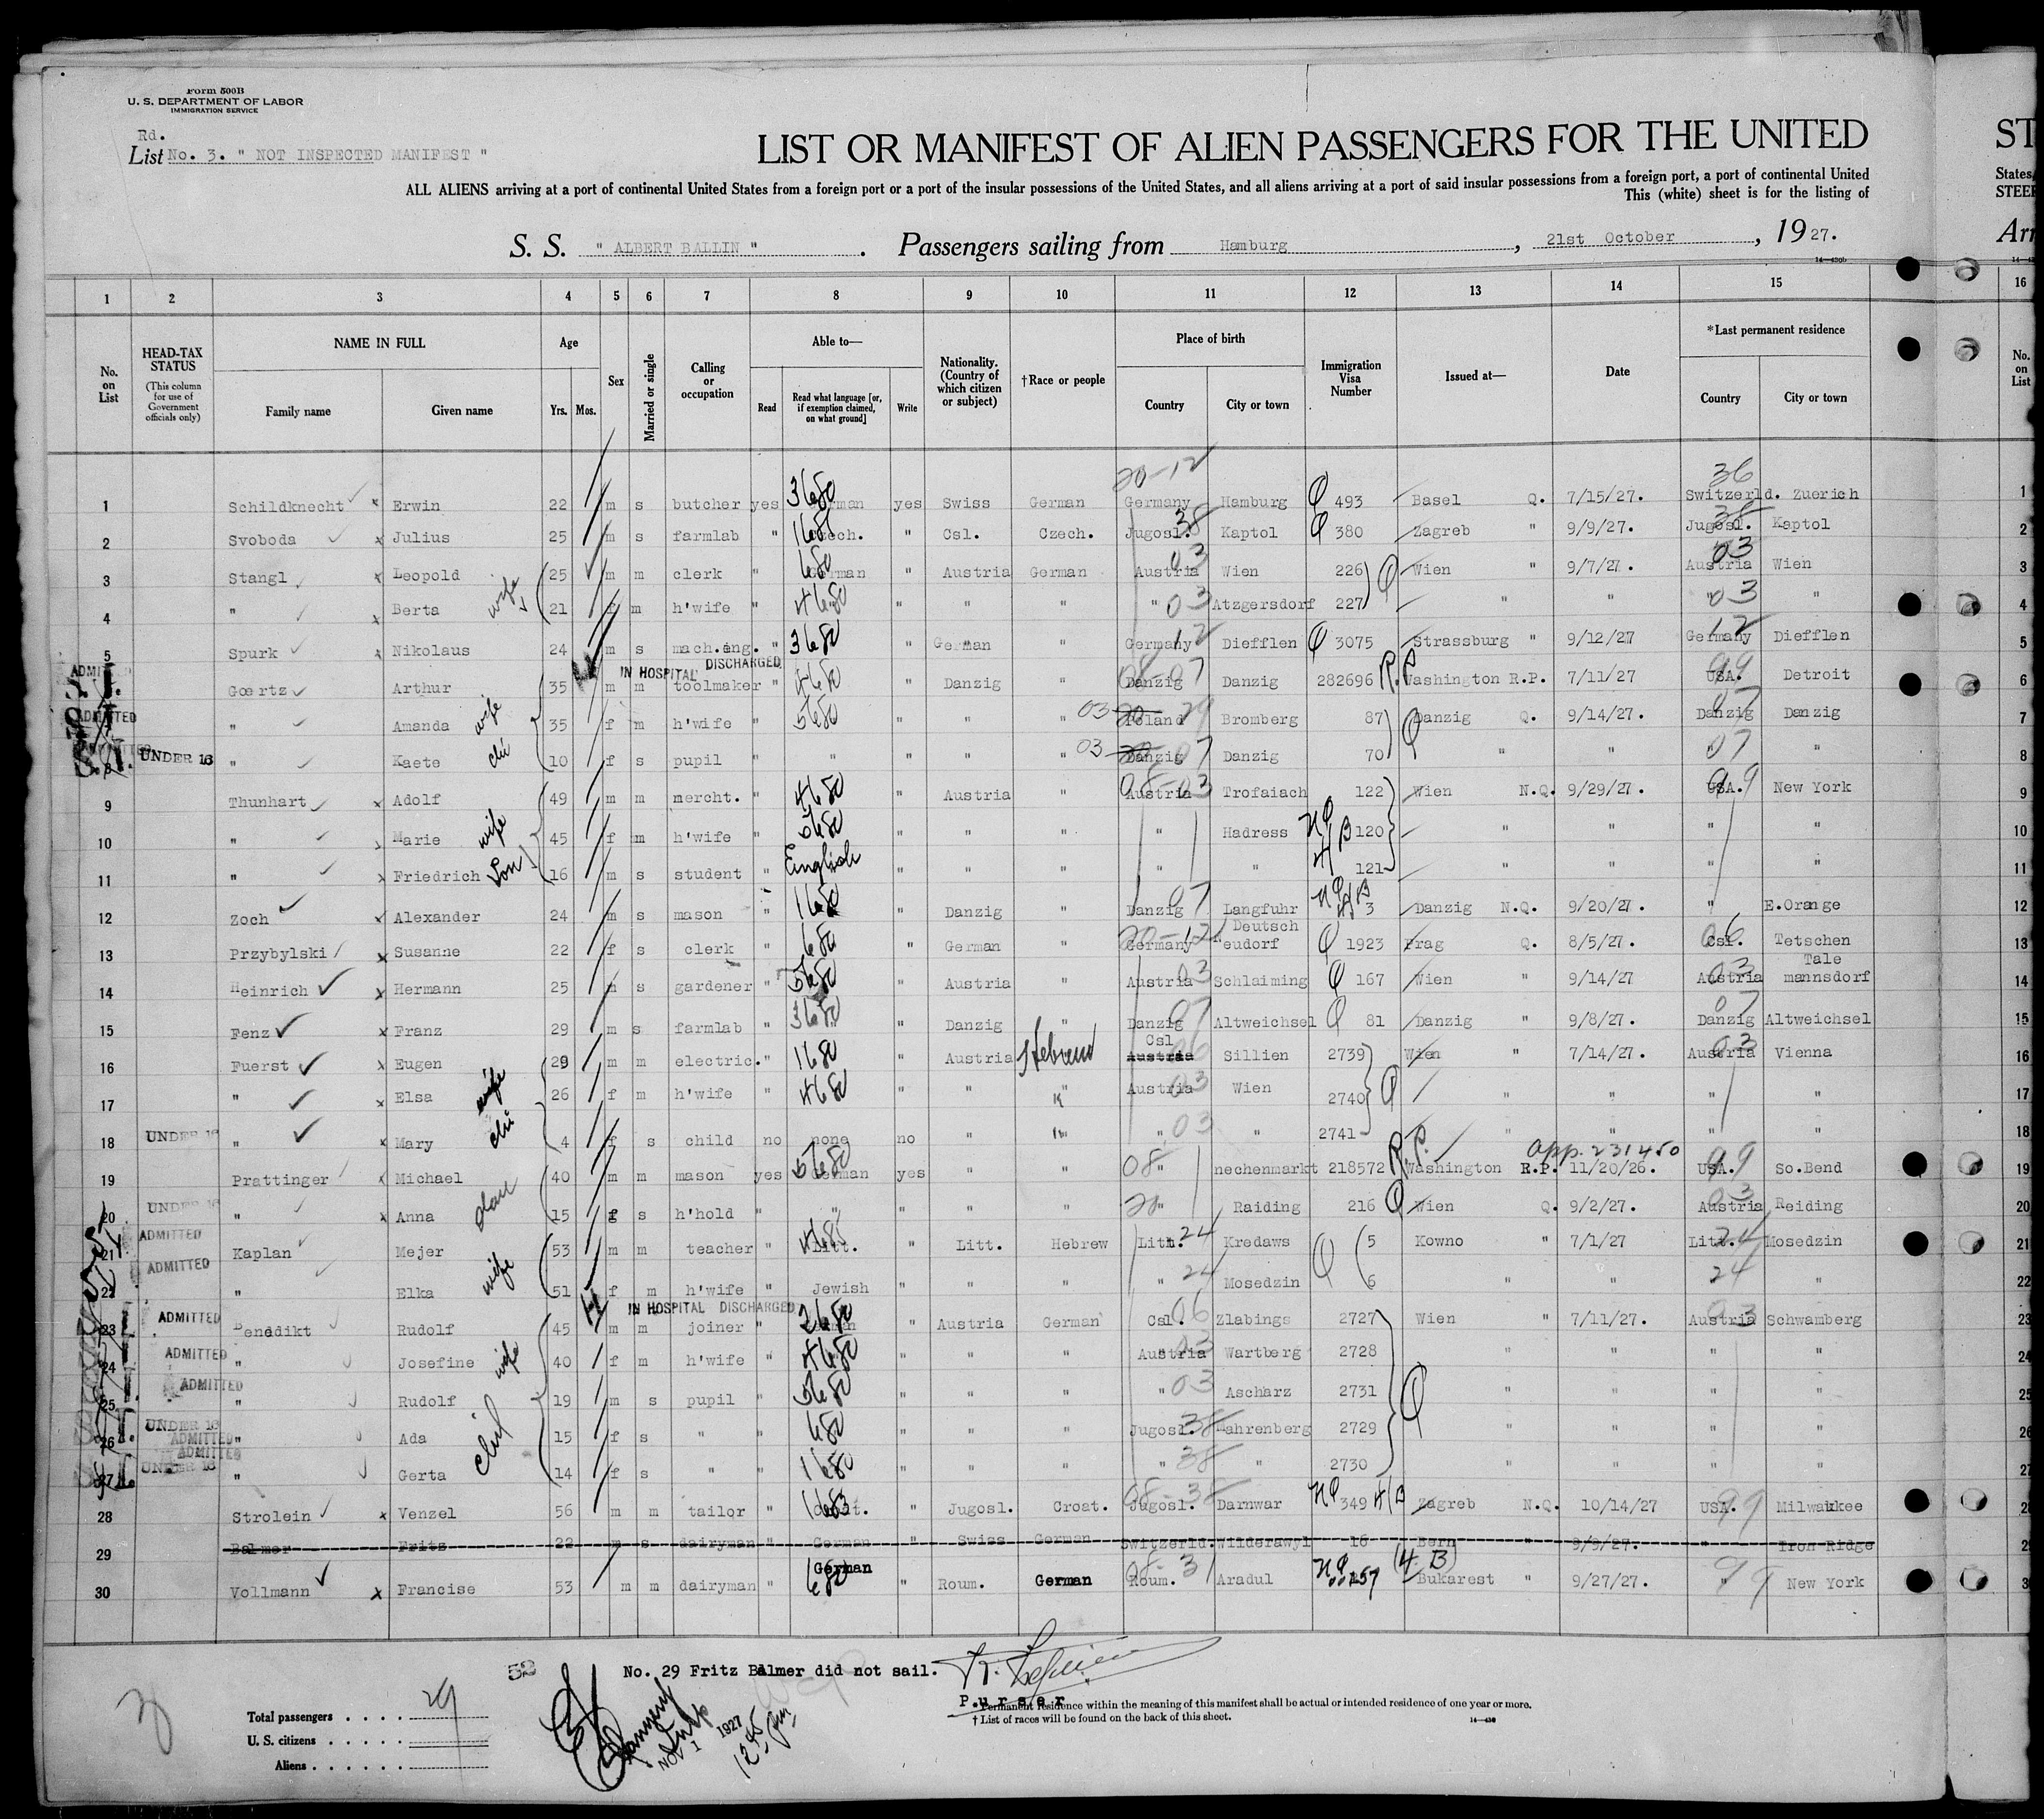 Form 500B
U. S. DEPARTMENT OF LABOR
IMMIGRATION SERVICE
Rd.
List No. 3. " NOT INSPECTED MANIFEST "
LIST OR MANIFEST OF ALIEN PASSENGERS FOR THE UNITED
ST
ALL ALIENS arriving at a port of continental United States from a foreign port or a port of the insular possessions of the United States, and all aliens arriving at a port of said insular possessions from a foreign port, a port of continental United
States,
This (white) sheet is for the listing of
S. S. " ALBERT BALLIN ". Passengers sailing from Hamburg, 21st October, 1927.
1 2 3 4 5 6 7 8 9 10 11 12 13 14 15 16
No. on List
HEAD-TAX STATUS (This column for use of Government officials only)
NAME IN FULL Family name Given name
Age Yrs. Mos.
Sex
Married or single
Calling or occupation
Able to— Read Read what language [or, if exemption claimed, on what ground] Write
Nationality. (Country of which citizen or subject)
†Race or people
Place of birth Country City or town
Immigration Visa Number
Issued at—
Date
*Last permanent residence Country City or town
No. on List
20-12 36
1 Schildknecht Erwin 22 m s butcher yes 3680 yes Swiss German Germany Hamburg 493 Basel Q. 7/15/27. Switzerld. Zuerich 1
2 Svoboda Julius 25 m s farmlab " Czech. " Csl. Czech. Jugosl. 38 Kaptol 380 Zagreb " 9/9/27. Jugosl. 38 Kaptol 2
3 Stangl Leopold 25 m m clerk " German 680 " Austria German Austria 03 Wien 226 Wien " 9/7/27. Austria 03 Wien 3
4 " Berta wife 21 f m h'wife " 4680 " " " " 03 Atzgersdorf 227 " " " 03 " 4
5 Spurk Nikolaus 24 m s mach.eng. " 3680 " German " Germany 12 Diefflen 3075 Strassburg " 9/12/27 Germany 12 Diefflen 5
ADMITTED IN HOSPITAL DISCHARGED
Goertz Arthur 35 m m toolmaker " 4680 " Danzig " Danzig 08-07 Danzig 282696 R.P. Washington R.P. 7/11/27 USA. 99 Detroit 6
ADMITTED " Amanda wife 35 f m h'wife " 5680 " " " 03 Poland Bromberg 87 Danzig Q. 9/14/27. Danzig 07 Danzig 7
8 UNDER 16 " Kaete chi 10 f s pupil " " " " " 03 Danzig 07 Danzig 70 " " " 07 " 8
9 Thunhart Adolf 49 m m mercht. " 4680 " Austria " Austria 08-03 Trofaiach 122 Wien N.Q. 9/29/27. USA. 99 New York 9
10 " Marie wife 45 f m h'wife " 5680 " " " " Hadress 120 " " " " 10
11 " Friedrich Son 16 m s student " English " " " " " 121 " " " " 11
12 Zoch Alexander 24 m s mason " 1680 " Danzig " Danzig 07 Langfuhr 3 Danzig N.Q. 9/20/27. " E.Orange 12
13 Przybylski Susanne 22 f s clerk " 680 " German " Germany 20-12 Deutsch Neudorf 1923 Prag Q. 8/5/27. Csl. 06 Tetschen 13
14 Heinrich Hermann 25 m s gardener " 5680 " Austria " Austria 03 Schlaiming 167 Wien " 9/14/27 Austria 03 Tale mannsdorf 14
15 Fenz Franz 29 m s farmlab " 3680 " Danzig " Danzig 07 Altweichsel 81 Danzig " 9/8/27. Danzig 07 Altweichsel 15
16 Fuerst Eugen 29 m m electric. " 1680 " Austria Hebrew Csl Austria 06 Sillien 2739 Wien " 7/14/27. Austria 03 Vienna 16
17 " Elsa wife 26 f m h'wife " 4680 " " " Austria 03 Wien 2740 " " " " 17
18 UNDER 16 " Mary chi 4 f s child no none no " " " 03 " 2741 " " " " 18
app. 231450
19 Prattinger Michael 40 m m mason yes German 5680 yes " " 08 " nechenmarkt 218572 R.P. Washington R.P. 11/20/26. USA. 99 So.Bend 19
20 UNDER 16 " Anna dau 15 f s h'hold " " " " " " Raiding 216 Wien Q. 9/2/27. Austria 03 Reiding 20
21 ADMITTED Kaplan Mejer 53 m m teacher " Litt. " Litt. Hebrew Lith. 24 Kredaws 5 Kowno " 7/1/27 Litt. 24 Mosedzin 21
22 ADMITTED " Elka wife 51 f m h'wife " Jewish " " " " 24 Mosedzin 6 " " " 24 " 22
IN HOSPITAL DISCHARGED
23 ADMITTED Benedikt Rudolf 45 m m joiner " 2680 " Austria German Csl. 06 Zlabings 2727 Wien " 7/11/27. Austria 03 Schwamberg 23
24 ADMITTED " Josefine wife 40 f m h'wife " 4680 " " " Austria 03 Wartberg 2728 " " " " 24
25 ADMITTED " Rudolf 19 m s pupil " 5680 " " " " 03 Ascharz 2731 " " " " 25
26 UNDER 16 ADMITTED " Ada 15 f s " " 680 " " " Jugosl. 38 Mahrenberg 2729 " " " " 26
27 UNDER 16 ADMITTED " Gerta 14 f s " " 1680 " " " " 38 " 2730 " " " " 27
28 Strolein Venzel 56 m m tailor " Croat. " Jugosl. Croat. Jugosl. 08-38 Darnwar 349 Zagreb N.Q. 10/14/27 USA. 99 Milwaukee 28
29 Balmer Fritz 22 m s dairyman " German " Swiss German Switzerld. Wilderswyl 16 Bern " 9/9/27. " Iron Ridge 29
30 Vollmann Francise 53 m m dairyman " German 680 " Roum. German Roum. 08-31 Aradul Bukarest " 9/27/27. " 99 New York 30
52 No. 29 Fritz Balmer did not sail.
Purser
Total passengers . . . . 29
U. S. citizens . . . . .
Aliens . . . . . .
NOV 1 1927
12 45 pm
* Permanent residence within the meaning of this manifest shall be actual or intended residence of one year or more.
† List of races will be found on the back of this sheet.